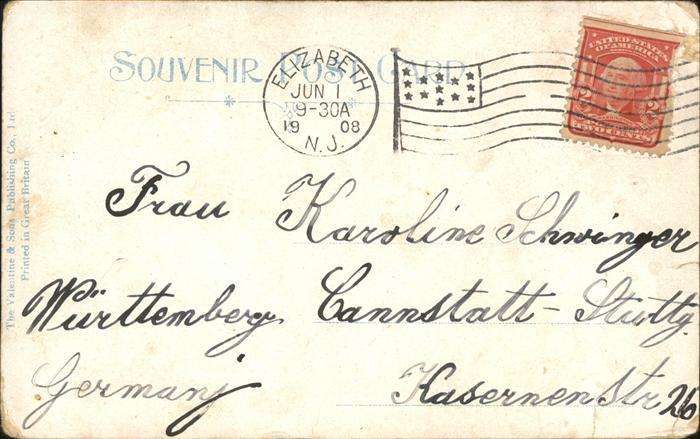 SOUVENIR POST CARD
ELIZABETH
JUN 1
9-30A
19 08
N.J.
UNITED STATES
OF AMERICA
2 2
TWO CENTS
Frau Karoline Schwinger
Württemberg Cannstatt-Stuttg.
Germanj Kasernenstr 26
The Valentine & Sons Publishing Co., Ltd.
Printed in Great Britain